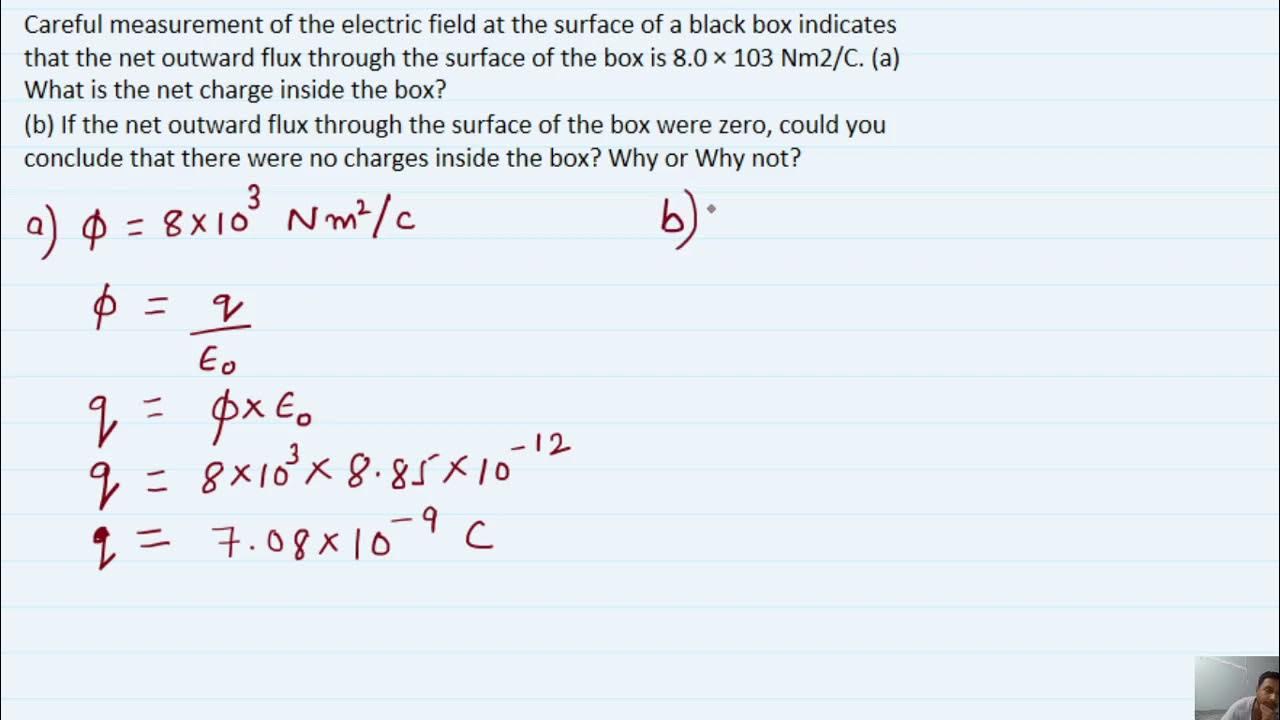 Careful measurement of the electric field at the surface of a black box indicates
that the net outward flux through the surface of the box is 8.0 × 103 Nm2/C. (a)
What is the net charge inside the box?
(b) If the net outward flux through the surface of the box were zero, could you
conclude that there were no charges inside the box? Why or Why not?
a) ϕ = 8×10³ Nm²/c
ϕ = q/ϵ₀
q = ϕ×ϵ₀
q = 8×10³×8.85×10⁻¹²
q = 7.08×10⁻⁹ C
b)